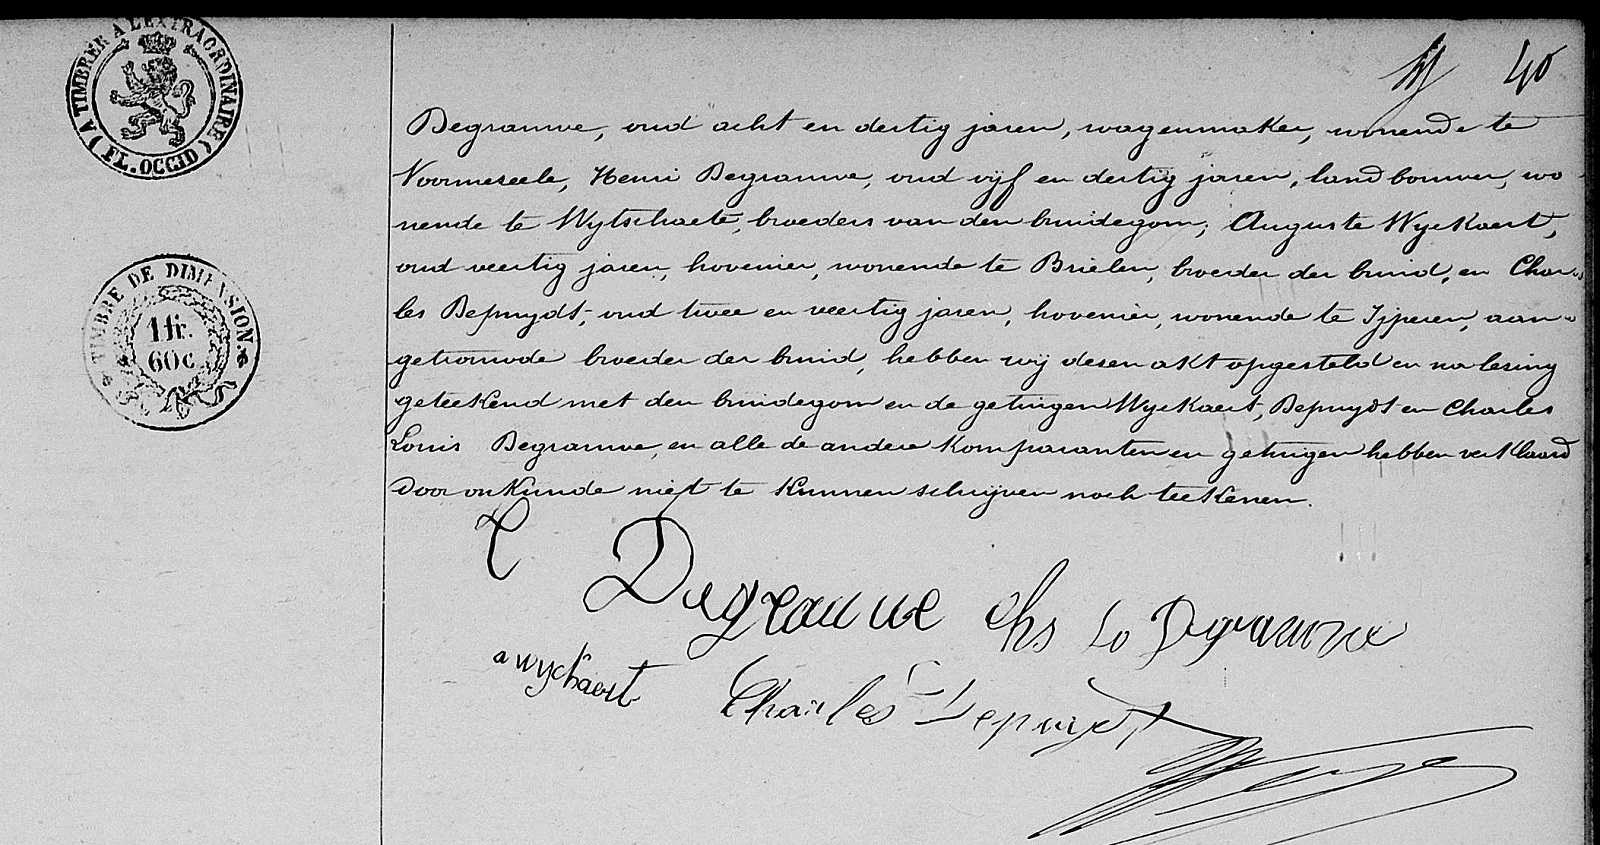 A TIMBRER A L'EXTRAORDINAIRE
(FL. OCCID)
TIMBRE DE DIMENSION.
1 fr.
60 c
40
Degraume, oud acht en dertig jaren, wagenmaker, wonende te
Voormeseele, Henri Degraume, oud vijf en dertig jaren, landbouwer, wo-
nende te Wytschaete, broeders van den bruidegom; Auguste Wyckaert,
oud veertig jaren, hovenier, wonende te Brielen, broeder der bruid, en Char-
les Depuydt, oud twee en veertig jaren, hovenier, wonende te Ijperen, aan-
getrouwde broeder der bruid, hebben wij desen akt opgesteld en na lesing
geteekend met den bruidegom en de getuigen Wyckaert, Depuydt en Charles
Louis Degraume, en alle de andere komparanten en getuigen hebben verklaard
door onkunde niet te kunnen schrijven noch teekenen.
C Degraume chs Lo Degraume
a wyckaert Charles Depuydt